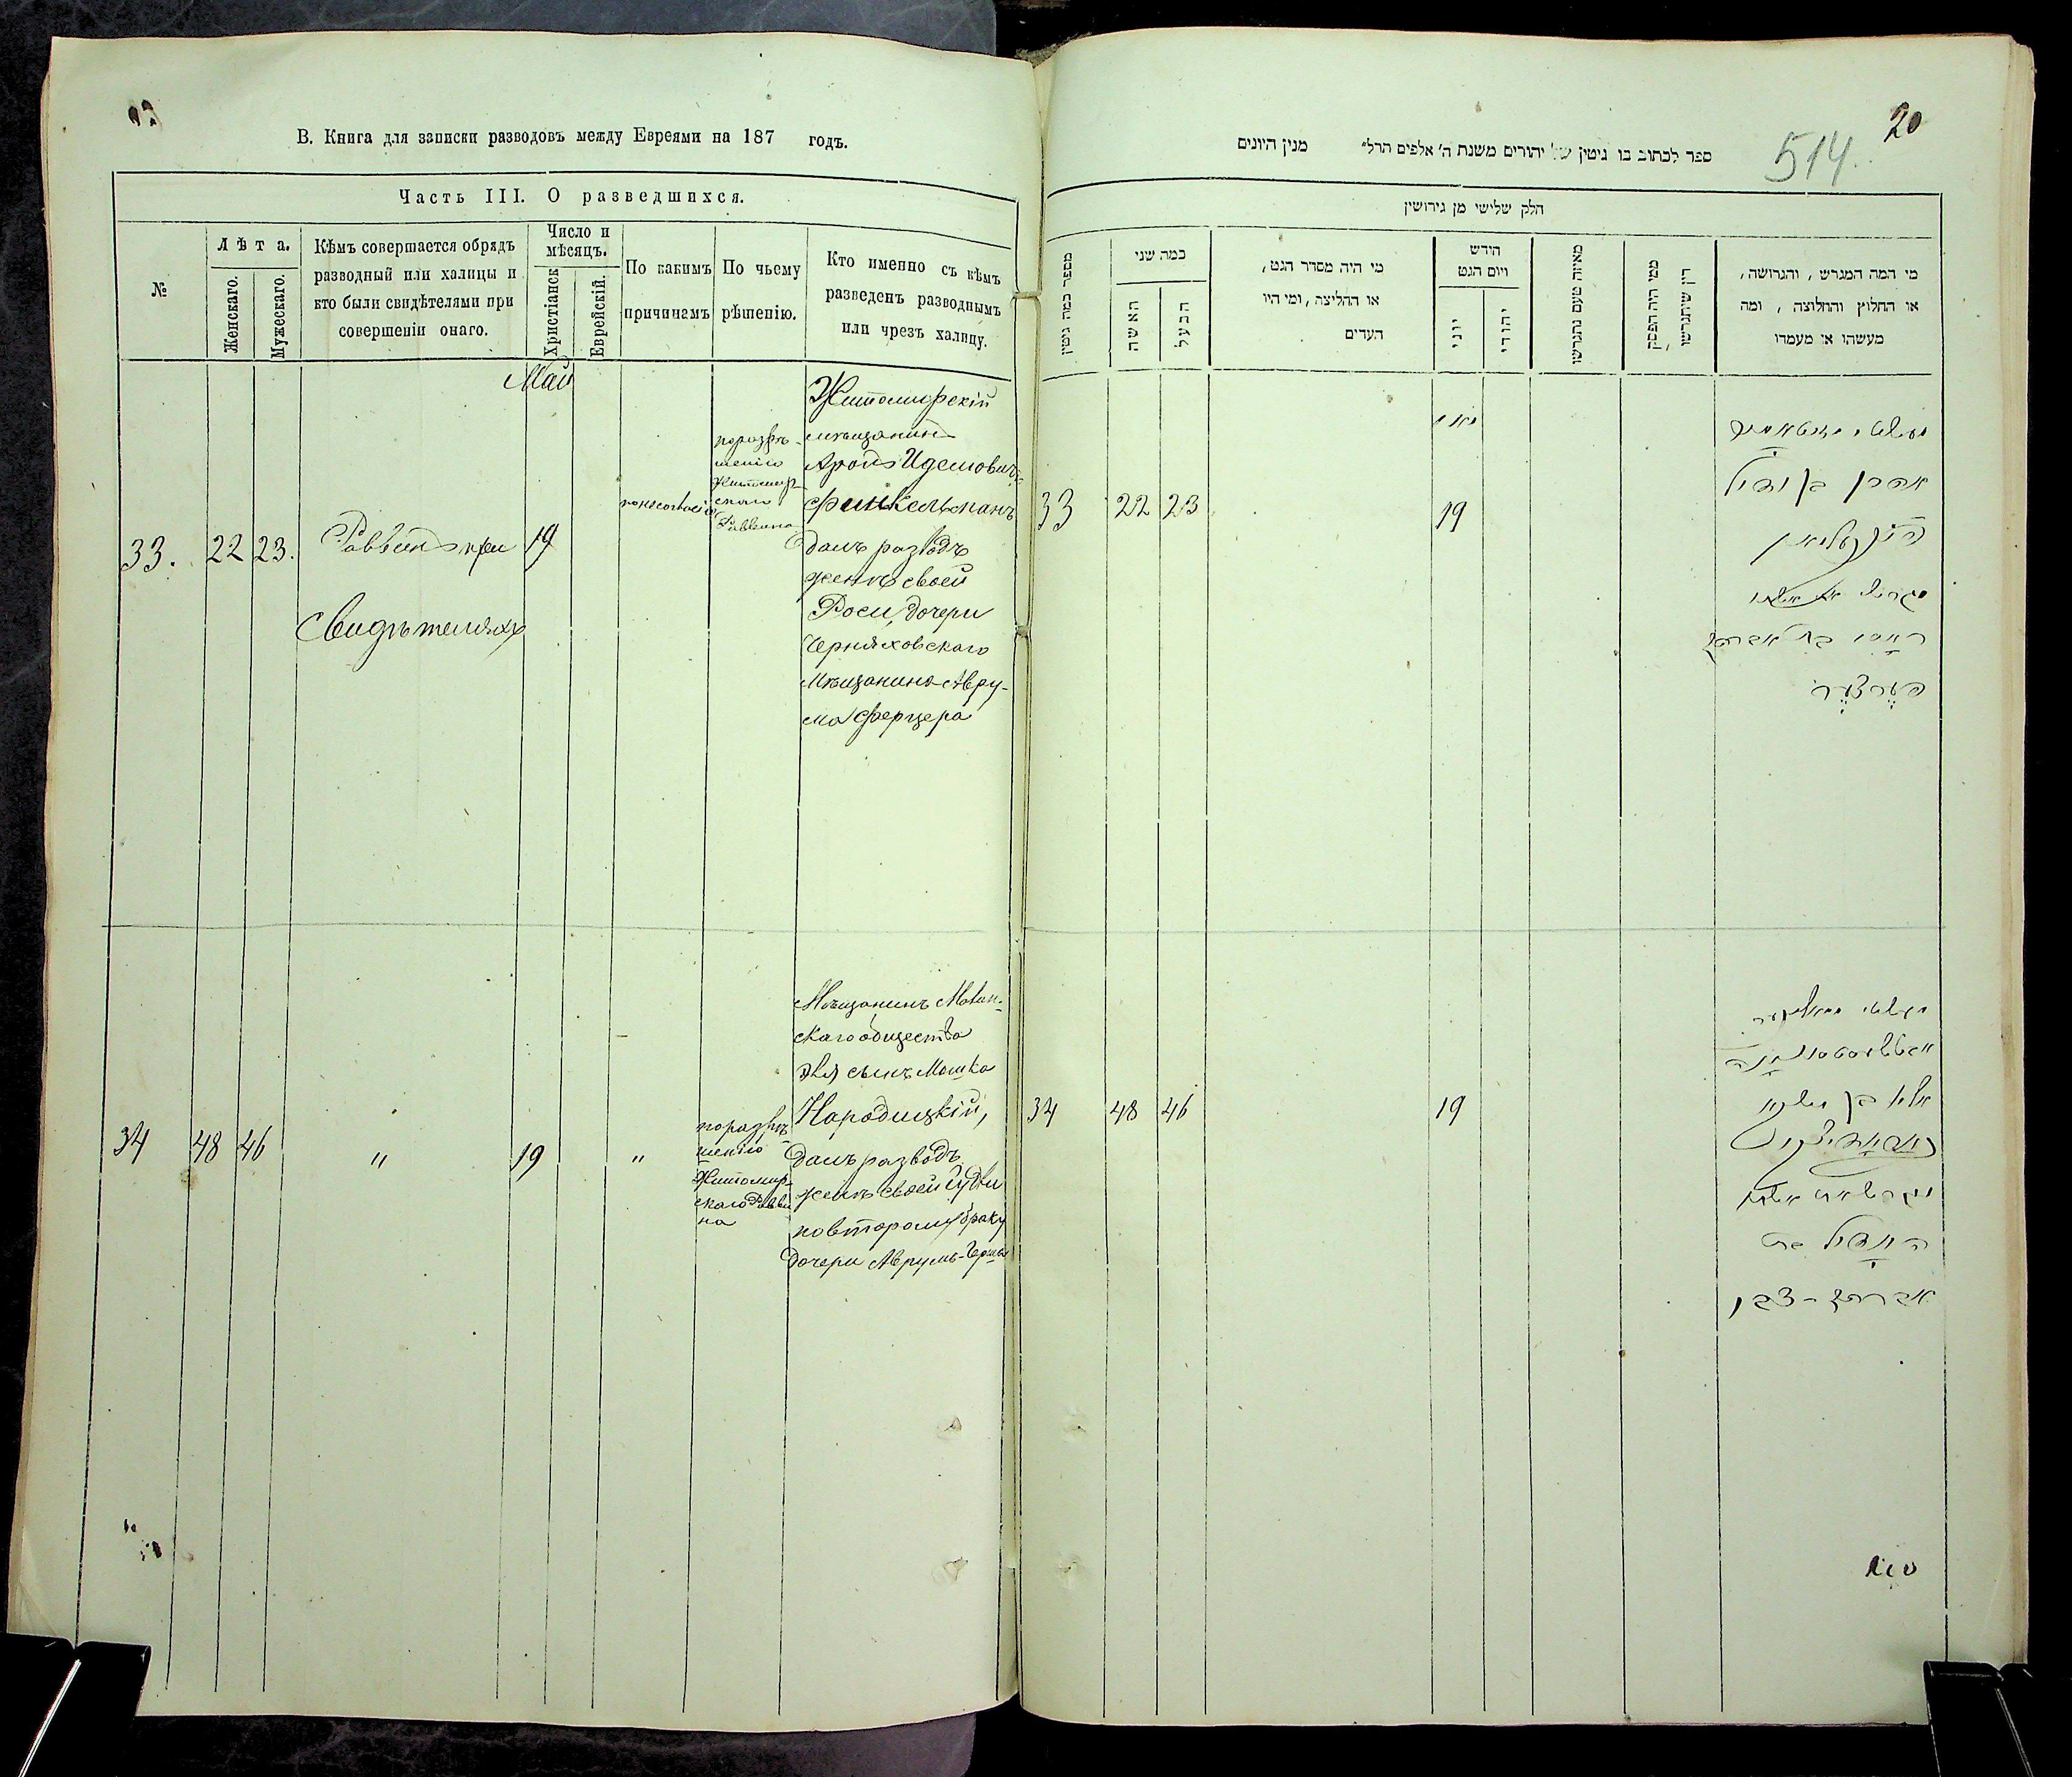 В. Книга для записки разводовъ между Евреями на 187 годъ.
Часть III. О разведшихся.
№
Лѣта.
Женскаго.
Мужескаго.
Кѣмъ совершается обрядъ
разводный или халицы и
кто были свидѣтелями при
совершеніи онаго.
Число и
мѣсяцъ.
Христіанск
Еврейскій.
По какимъ
причинамъ
По чьему
рѣшенію.
Кто именно съ кѣмъ
разведенъ разводнымъ
или чрезъ халицу.
Май
33.
22
23.
Раввинъ при
Свидѣтеляхъ
19
по несогласію
по разрѣ-
шенію
Житомир-
скаго
Раввина
Житомирскій
мѣщанинъ
Аронъ Иделiовичъ
Финкельманъ
далъ разводъ
женѣ своей
Роси, дочери
Черняховскаго
Мѣщанина Авру-
ма Ферцера
34
48
46
"
19
"
по разрѣ-
шенію
Житомир-
скаго Равви
на
Мѣщанинъ
скаго общества
сынъ Мошка
Народицкій,
далъ разводъ
женѣ своей
по второму браку
дочери Аврумъ-Герша
20
514
ספר לכתוב בו גיטין של יהודים משנת ה' אלפים תרל" מנין היונים
חלק שלישי מן גירושין
מספר כמה גיטין
כמה שני
האשה
הבעל
מי היה מסדר הגט,
או החליצה, ומי היו
העדים
חודש
ויום הגט
יוני
יהודי
מאיזה טעם נתגרשו
ממי היה הפסק
דין שיתגרשו
מי המה המגרש, והגרושה,
או החלוץ והחלוצה, ומה
מעשהו או מעמדו
33
22
23
מאי
19
אהרן בן יודיל
פינקעלמאן
וגירש את אשתו
ראסי בת אברהם
פערצער
34
48
46
19
אליי בן משקא
נאראדיצקי
וגירש את אשתו
בת
אברהם-צבי